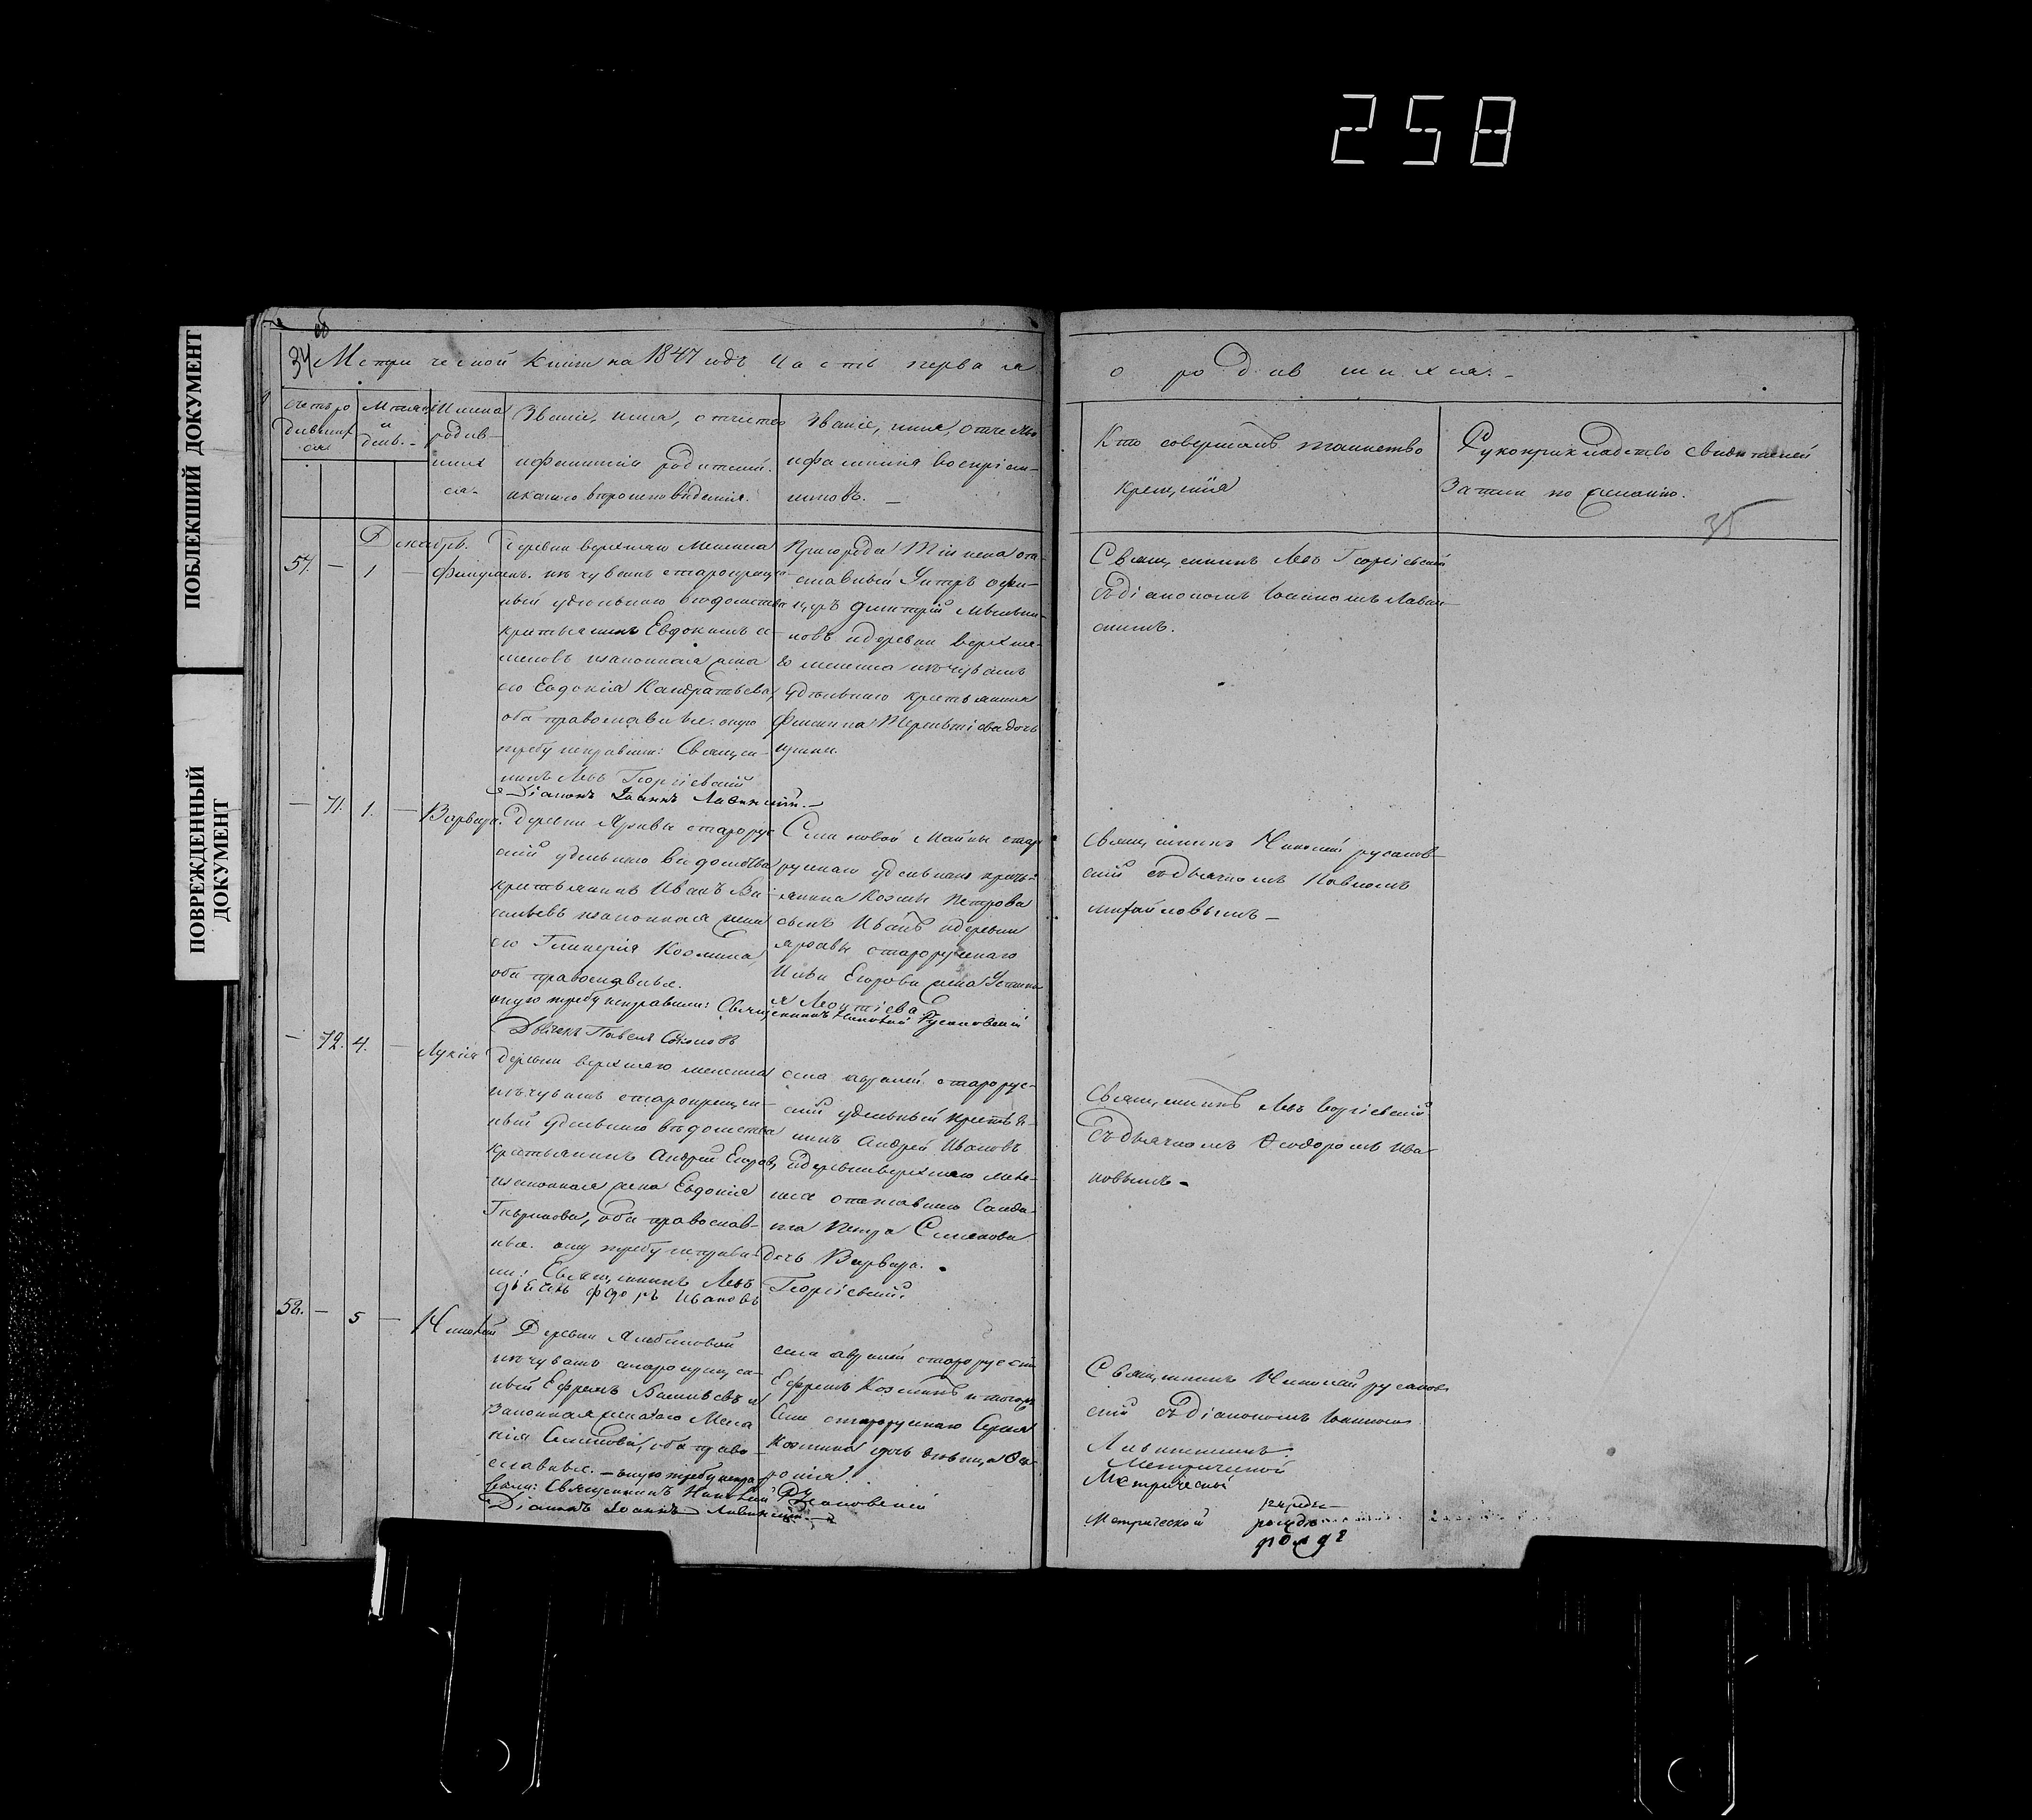 258
ПОБЛЕКШИЙ ДОКУМЕНТ
ПОВРЕЖДЕННЫЙ
ДОКУМЕНТ
об
34 Метрической книги на 1847 годъ Часть первая
о родившихся.
Счетъ ро
дивших
ся
Мѣсяцъ
и
день.
Имена
родив-
ших
ся.
Званіе, имя, отчество
и фамилія родителей.
и какого вѣроисповѣданія.
Званіе, имя, отчество
и фамилія воспріем-
никовъ.
Кто совершалъ таинство
крещенія
Рукоприкладство свидѣтелей
записи по желанію.
35
Декабрь.
57. — 1 —
Деревни верхняго Меленна
изъ чувашъ старокреще-
ный удѣльнаго вѣдомства
крестьянинъ Евдокимъ се-
меновъ и законная жена
его Евдокія Кандратьева,
оба православные. оную
требу исправили: Священ-
никъ Левъ Георгіевскій
Діаконъ Іоаннъ Лавинскій.
Пригорода Тіинска от-
ставный Унтръ офи-
церъ Дмитрій
новъ и деревни верхня-
го изъ чувашъ
удѣльнаго крестьянина
Филиппа Терентіева дочь
Священникъ Левъ Георгіевскій
съ діакономъ Іоанномъ Лавин-
скимъ.
— 71. 1. — Варвара.
деревни старорус
скій удѣльнаго вѣдомства
крестьянинъ Иванъ Ва-
сильевъ и законная жена
его Гликерія Козмина,
оба православные.
оную требу исправили: Священникъ Николай Русановскій
Дьячекъ Павелъ
Села новой Майны стар
рускаго удѣльнаго кресть-
янина Козмы Петрова
сынъ Иванъ и деревни
старорускаго
Ильи Егорова жена
я Леонтіева
Священникъ Николай русанов-
скій съ дьячкомъ Павломъ
михайловымъ —
— 72. 4. — Лукія
Деревни верхняго
изъ чувашъ старокрещен-
ный удѣльнаго вѣдомства
крестьянинъ Андрей Егоровъ
и законная жена Евдокія
Гаврилова, оба православ-
ные. оную требу исправи-
ли: Священникъ Левъ Георгіевскій.
дьячекъ Федоръ Ивановъ
села старорус-
скій удѣльный крестья-
нинъ Андрей Ивановъ
и деревни верхняго
отставнаго Солда-
та Петра Семенова
дочь Варвара.
Священникъ Левъ Георгіевскій
съ дьячкомъ Ѳеодоромъ Ива
новымъ.
58. — 5 — Николай
Деревни
изъ чувашъ старокреще-
ный Ефремъ Васильевъ и
Законная жена его Мела
нія Семенова, оба право-
славные. — оную требу испра
вили: Священникъ Николай Русановскій
Діаконъ Іоаннъ Лавинскій.
села старорускій
Ефремъ Козминъ и тогожъ
Села старорускаго Сергія
Козмина дочь дѣвица Ѳе-
ронія.
Священникъ Николай русанов
скій съ діакономъ Іоанномъ
Лавинскимъ.
Метрической
Метрической
Метрической